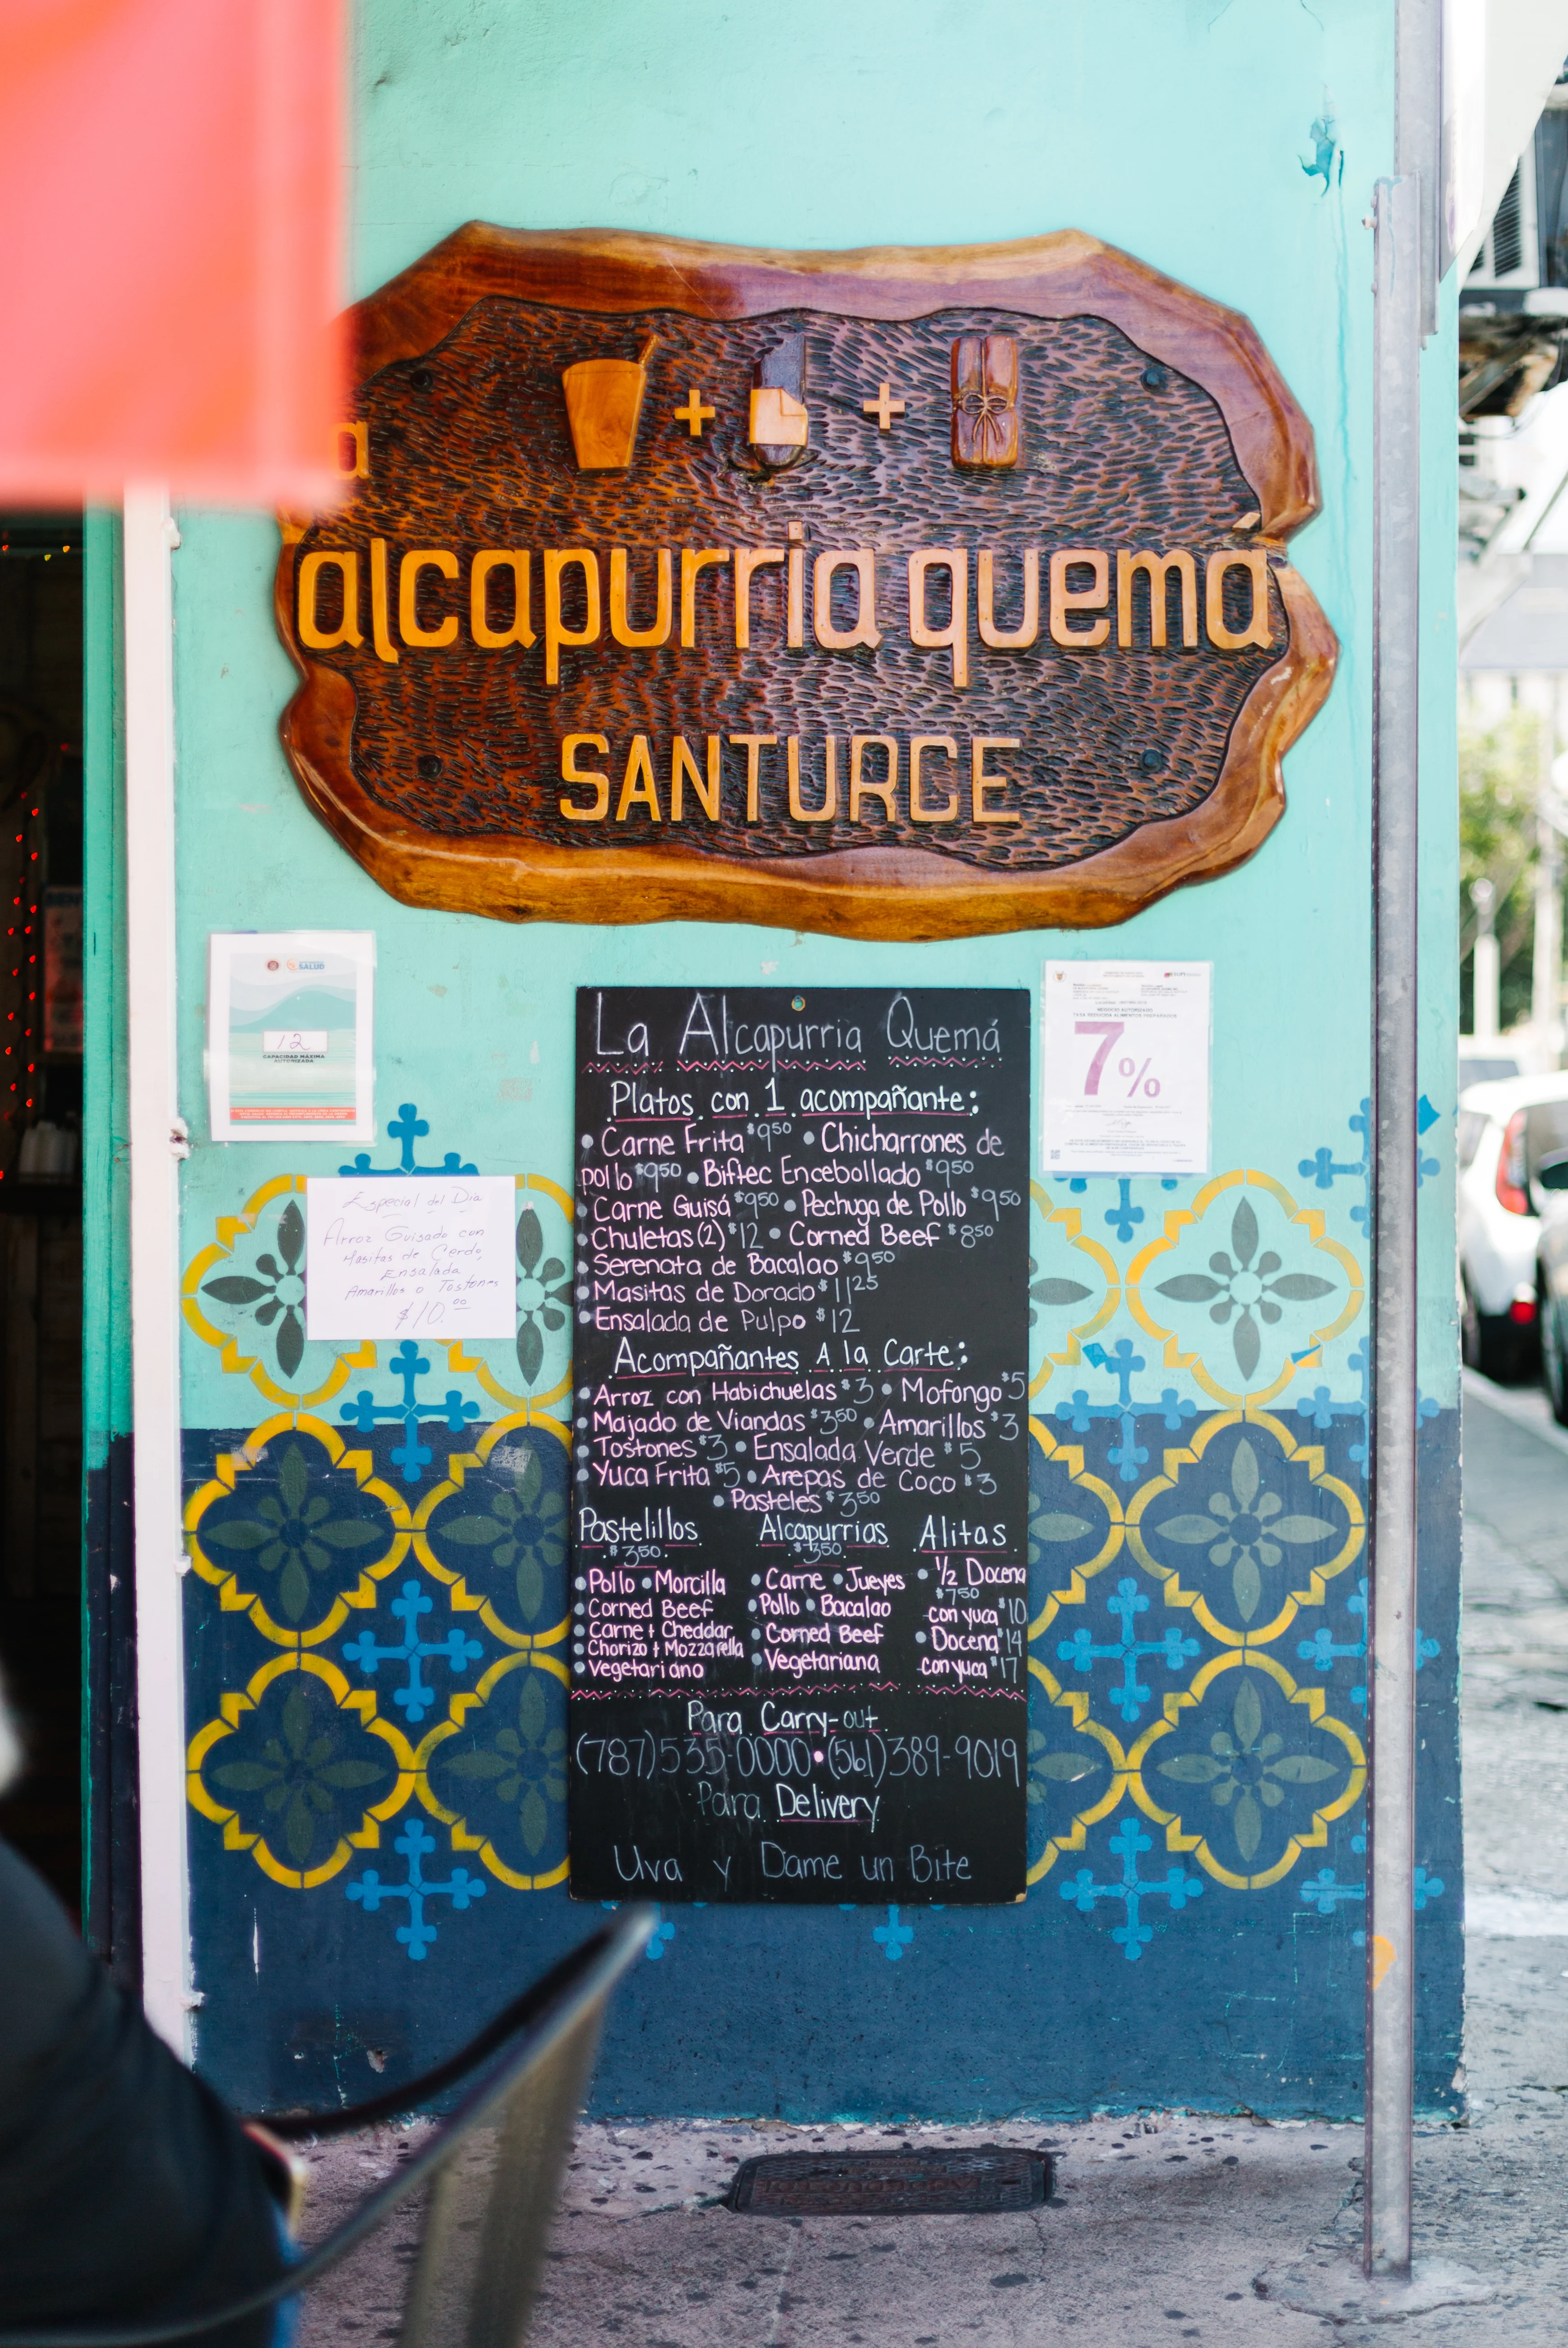 a
alcapurria quemá
SANTURCE
SALUD
12
CAPACIDAD MÁXIMA
AUTORIZADA
Especial del Dia
Arroz Guisado con
Masitas de Cerdo,
Ensalada
Amarillos o Tostones
$10.00
NEGOCIO AUTORIZADO
TASA REDUCIDA ALIMENTOS PREPARADOS
7%
La Alcapurria Quemá
Platos con 1 acompañante:
• Carne Frita $9.50 • Chicharrones de
pollo $9.50 • Biftec Encebollado $9.50
• Carne Guisá $9.50 • Pechuga de Pollo $9.50
• Chuletas (2) $12 • Corned Beef $8.50
• Serenata de Bacalao $9.50
• Masitas de Dorado $11.25
• Ensalada de Pulpo $12
Acompañantes A la Carte:
• Arroz con Habichuelas $3 • Mofongo $5
• Majado de Viandas $3.50 • Amarillos $3
• Tostones $3 • Ensalada Verde $5
• Yuca Frita $5 • Arepas de Coco $3
• Pasteles $3.50
Pastelillos
$3.50
• Pollo • Morcilla
• Corned Beef
• Carne + Cheddar
• Chorizo + Mozzarella
• Vegetariano
Alcapurrias
$3.50
• Carne • Jueyes
• Pollo • Bacalao
• Corned Beef
• Vegetariana
Alitas
• 1/2 Docena
$7.50
con yuca $10
• Docena $14
con yuca $17
Para Carry-out
(787)535-0000 • (561)389-9019
Para Delivery
Uva y Dame un Bite